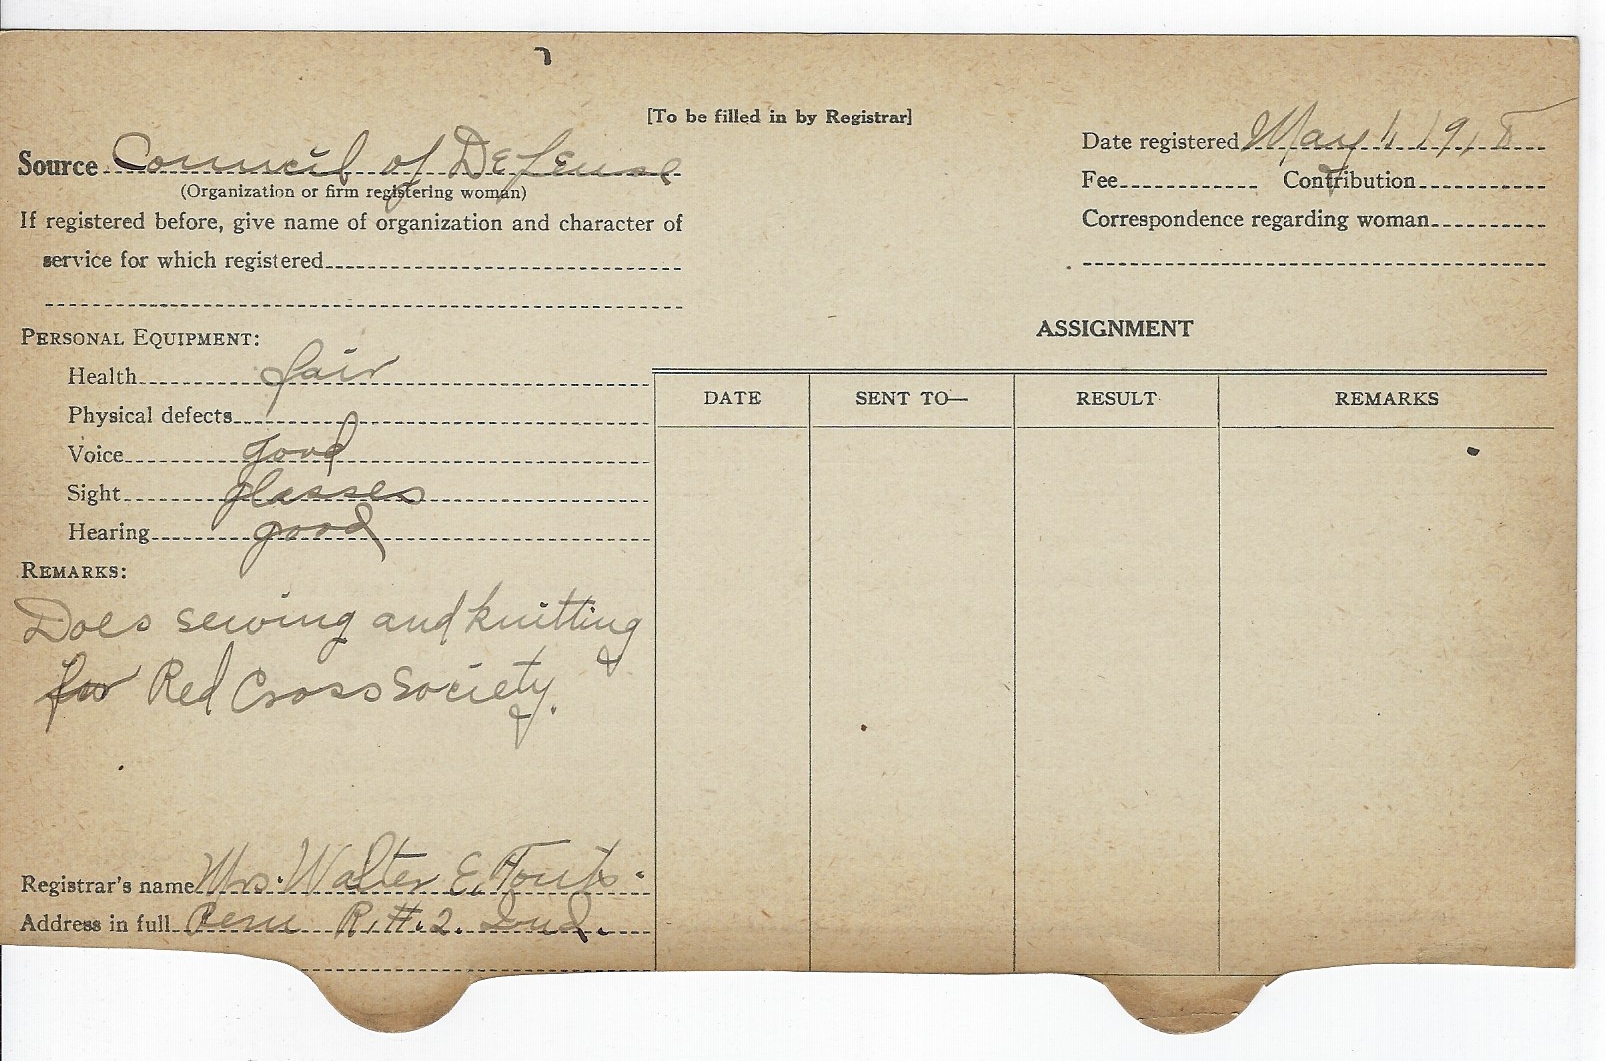 [To be filled in by Registrar]
Source Council of Defense
(Organization or firm registering woman)
If registered before, give name of organization and character of
service for which registered
Date registered May 1, 1918
Fee Contribution
Correspondence regarding woman
PERSONAL EQUIPMENT:
Health fair
Physical defects
Voice good
Sight glasses
Hearing good
REMARKS:
Does sewing and knitting
for Red Cross Society.
Registrar's name Mrs. Walter E. Fouts.
Address in full Peru R.#.2. Ind.
ASSIGNMENT
DATE SENT TO— RESULT REMARKS